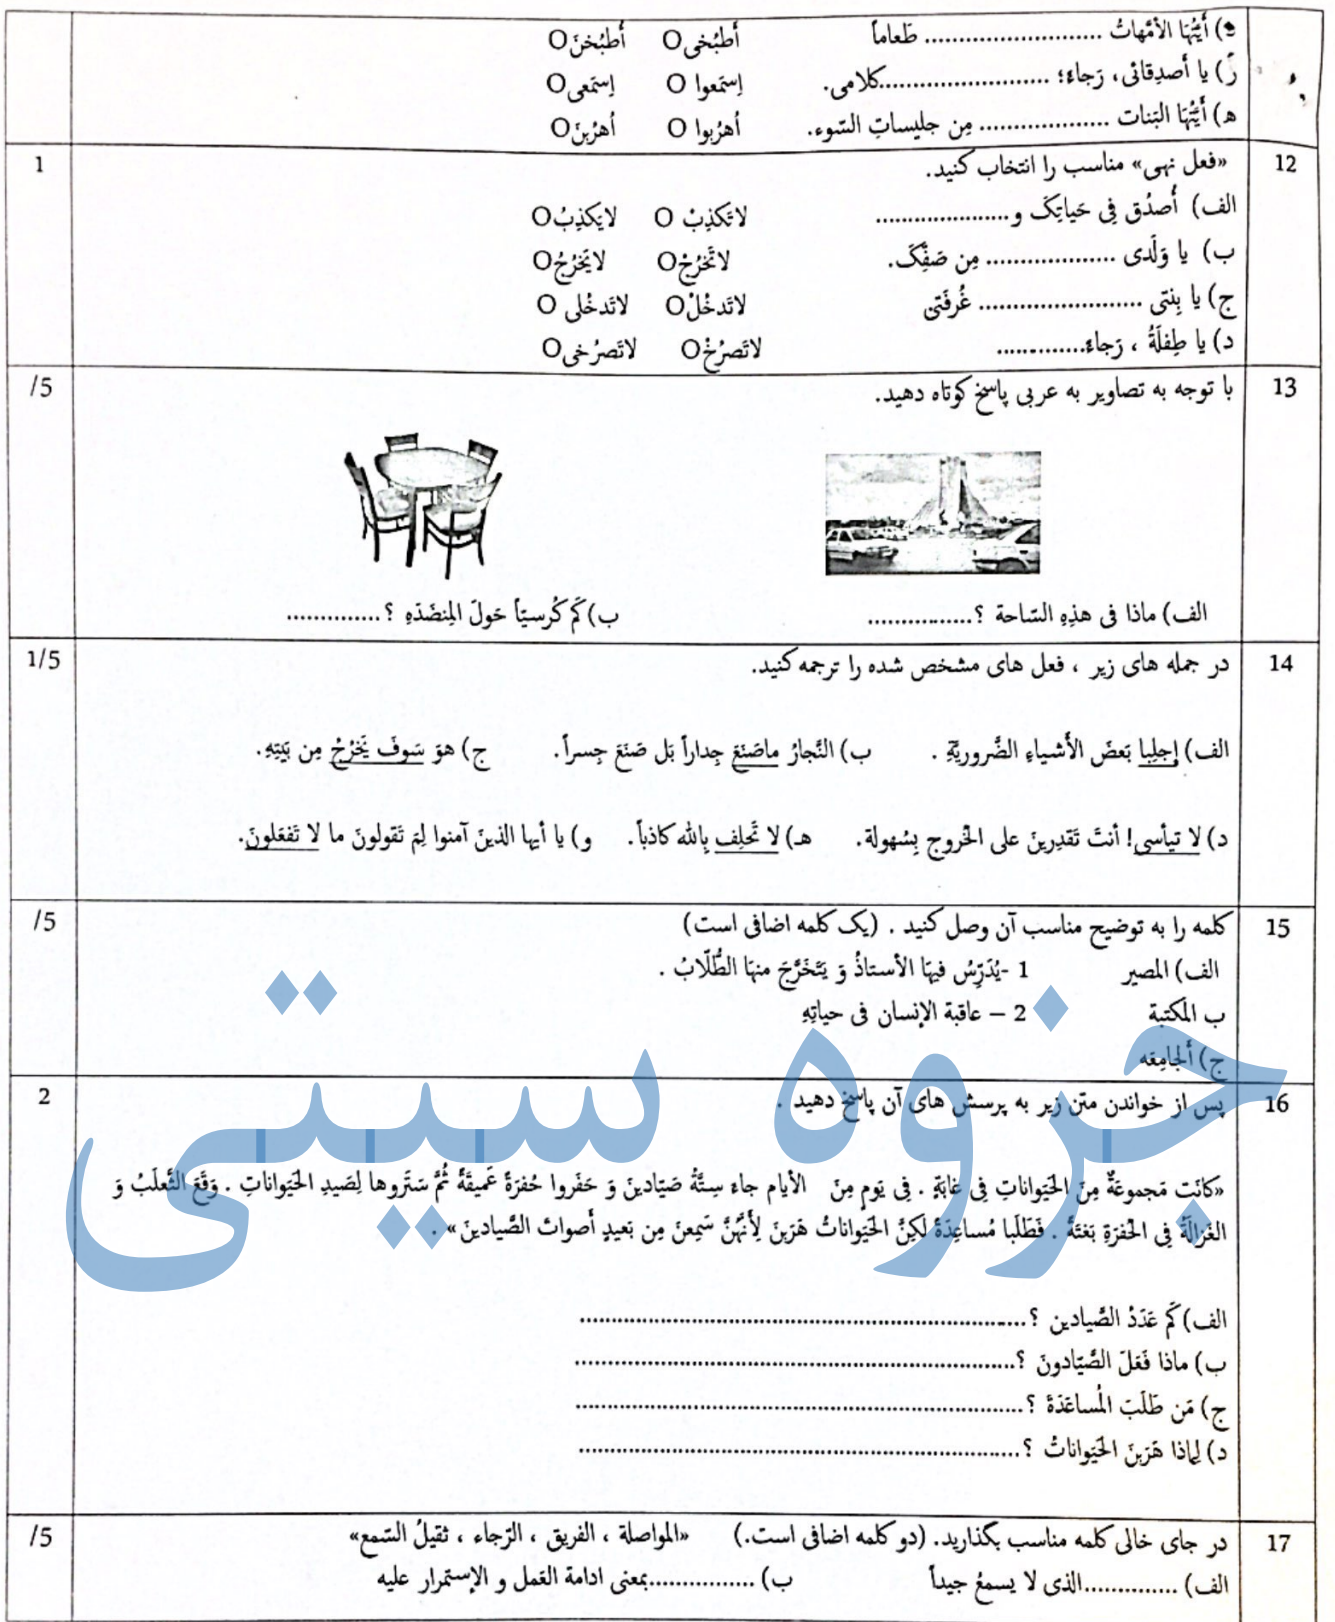 و) أَيَّتُهَا الأمَّهاتُ .......................... طَعاماً أَطبُخی O أَطبُخنَ O
ز) یا أَصدِقائی، رَجاءً؛ ......................... کلامی. اِستَمِعوا O اِستَمِعی O
ه) أَيَّتُهَا البَنات ................... مِن جلیساتِ السّوء. أُهرُبوا O أُهرُبنَ O
12 «فعل نهی» مناسب را انتخاب کنید. 1
الف) أُصدُق فِی حَیاتِکَ و .................... لاتَکذِبْ O لایَکذِبُ O
ب) یا وَلَدی ................... مِن صَفِّکَ. لاتَخرُجْ O لایَخرُجُ O
ج) یا بِنتی ........................ غُرفَتی لاتَدخُلْ O لاتَدخُلی O
د) یا طِفلَةُ ، رَجاءً............. لاتَصرُخْ O لاتَصرُخی O
13 با توجه به تصاویر به عربی پاسخ کوتاه دهید. /5
الف) ماذا فی هذِهِ السّاحة ؟............... ب) کَم کُرسیّاً حَولَ المِنضَدَهِ ؟..............
14 در جمله های زیر ، فعل های مشخص شده را ترجمه کنید. 1/5
الف) إجلِبا بَعضَ الأَشیاءِ الضَّروریَّةِ . ب) النَّجارُ ماصَنَعَ جِداراً بَل صَنَعَ جِسراً. ج) هوَ سَوفَ یَخرُجُ مِن بَیتِهِ.
د) لا تیأسی! أنتَ تَقدِرینَ علی الخُروج بِسُهولة. هـ) لا تَحلِف بِالله کاذباً. و) یا أیها الذینَ آمنوا لِمَ تَقولونَ ما لا تَفعَلونَ.
15 کلمه را به توضیح مناسب آن وصل کنید . (یک کلمه اضافی است) /5
الف) المصیر 1 -یُدَرِّسُ فیهَا الأستاذُ وَ یَتَخَرَّجَ منهَا الطُّلّابُ .
ب المَکتبة 2 – عاقبة الإنسان فی حیاتِهِ
ج) ألجامِعَه
16 پس از خواندن متن زیر به پرسش های آن پاسخ دهید . 2
«کانَت مَجموعَةٌ مِنَ الحَیَواناتِ فِی غابَةٍ . فِی یَومٍ مِنَ الأیام جاءَ سِتَّةُ صَیّادینَ وَ حَفَروا حُفرَةً عَمیقَةً ثُمَّ سَتَروها لِصَیدِ الحَیَواناتِ . وَقَعَ الثَّعلَبُ وَ
الغَزالَةُ فِی الحُفرَةِ بَغتَةً . فَطَلَبا مُساعِدَةً لَکِنَّ الحَیَواناتُ هَرَبنَ لِأَنَّهُنَّ سَمِعنَ مِن بَعیدٍ أَصواتَ الصَّیادینَ» .
الف) کَم عَدَدُ الصَّیادین ؟................................................................
ب) ماذا فَعَلَ الصَّیّادونَ ؟...............................................................
ج) مَن طَلَبَ المُساعَدَةَ ؟................................................................
د) لِماذا هَرَبنَ الحَیَواناتُ ؟...............................................................
17 در جای خالی کلمه مناسب بگذارید. (دو کلمه اضافی است.) «المواصلة ، الفریق ، الرّجاء ، ثقیلُ السّمع» /5
الف) ..............الذی لا یسمعُ جیداً ب) ................بمعنی ادامة العَمل و الإستمرار علیه
جزوه سیتی